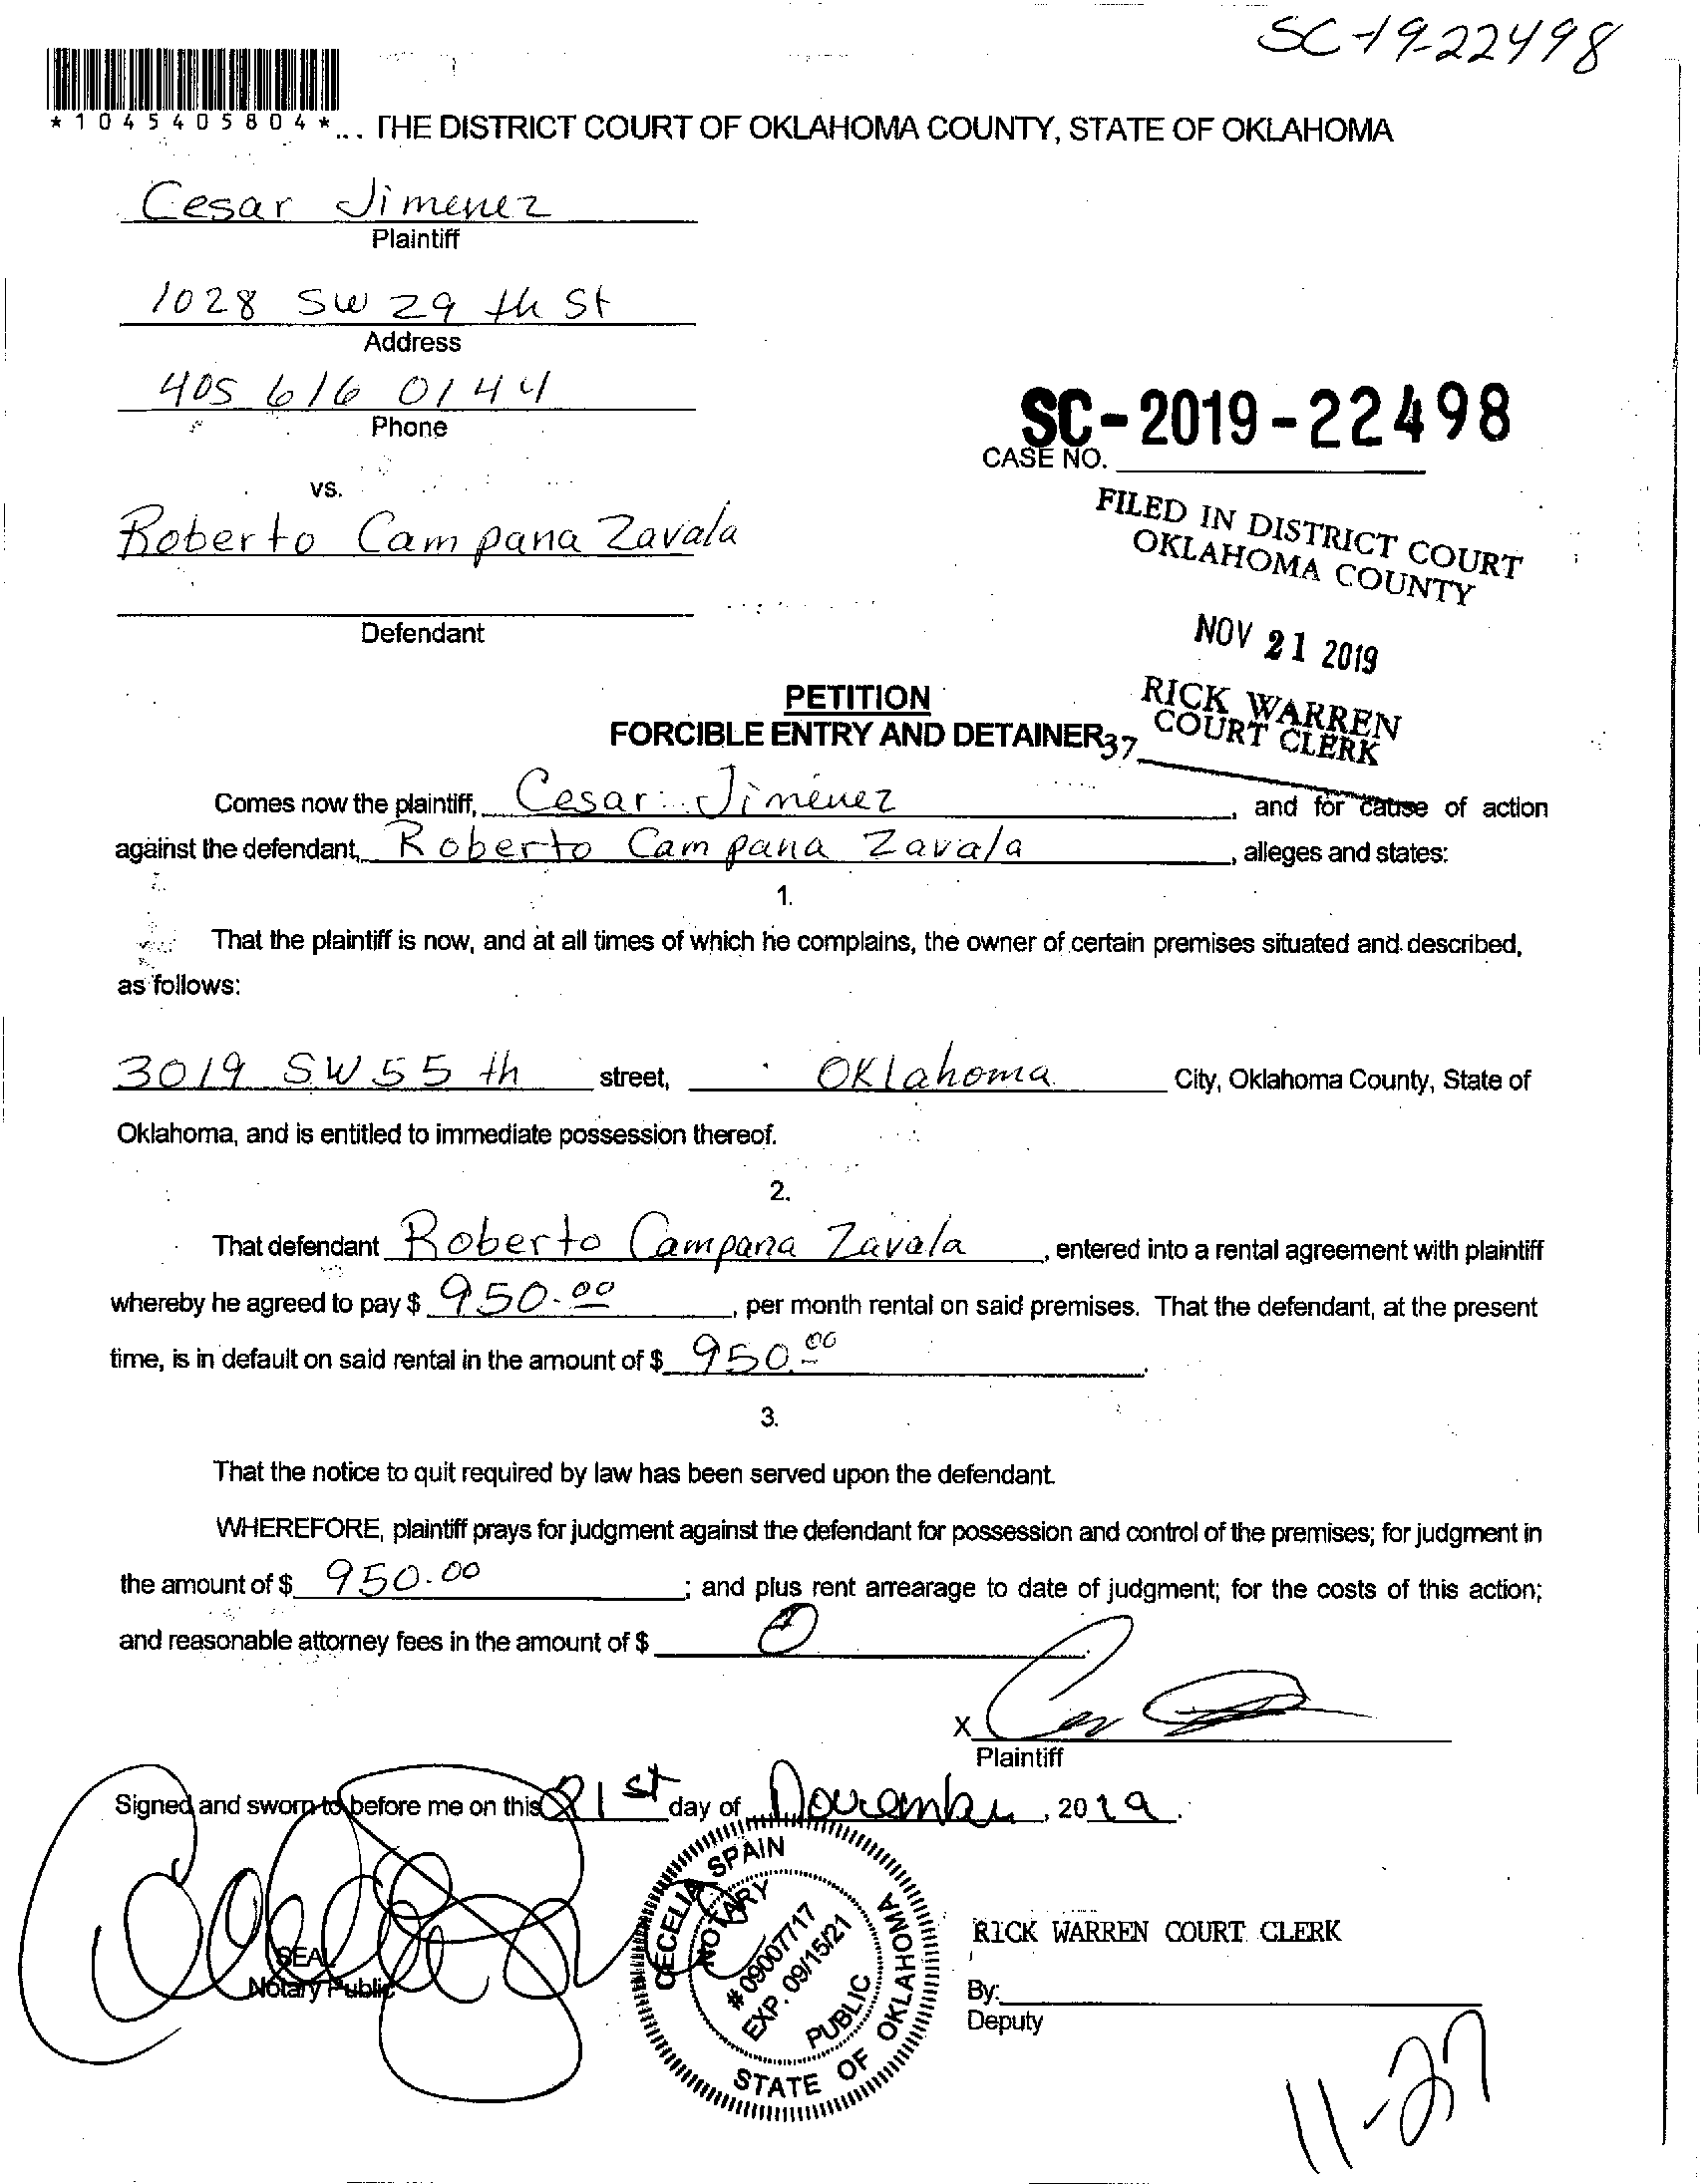 SC-19-22498
*1045405804*... THE DISTRICT COURT OF OKLAHOMA COUNTY, STATE OF OKLAHOMA
Cesar Jimenez
Plaintiff
1028 SW 29 th St
Address
405 616 0144
Phone
SC-2019-22498
CASE NO.
vs.
Roberto Campana Zavala
Defendant
FILED IN DISTRICT COURT
OKLAHOMA COUNTY
NOV 21 2019
RICK WARREN
COURT CLERK
37
PETITION
FORCIBLE ENTRY AND DETAINER
Comes now the plaintiff, Cesar Jimenez, and for cause of action
against the defendant, Roberto Campana Zavala, alleges and states:
1.
That the plaintiff is now, and at all times of which he complains, the owner of certain premises situated and described,
as follows:
3019 SW 55 th street, Oklahoma City, Oklahoma County, State of
Oklahoma, and is entitled to immediate possession thereof.
2.
That defendant Roberto Campana Zavala, entered into a rental agreement with plaintiff
whereby he agreed to pay $ 950.00, per month rental on said premises. That the defendant, at the present
time, is in default on said rental in the amount of $ 950.00.
3.
That the notice to quit required by law has been served upon the defendant.
WHEREFORE, plaintiff prays for judgment against the defendant for possession and control of the premises; for judgment in
the amount of $ 950.00; and plus rent arrearage to date of judgment; for the costs of this action;
and reasonable attorney fees in the amount of $ 0
X
Plaintiff
Signed and sworn to before me on this 21st day of November, 2019.
SEAL
Notary Public
CECELIA SPAIN
NOTARY
# 09007717
EXP. 09/15/21
PUBLIC
STATE OF OKLAHOMA
RICK WARREN COURT CLERK
By:
Deputy
11-27